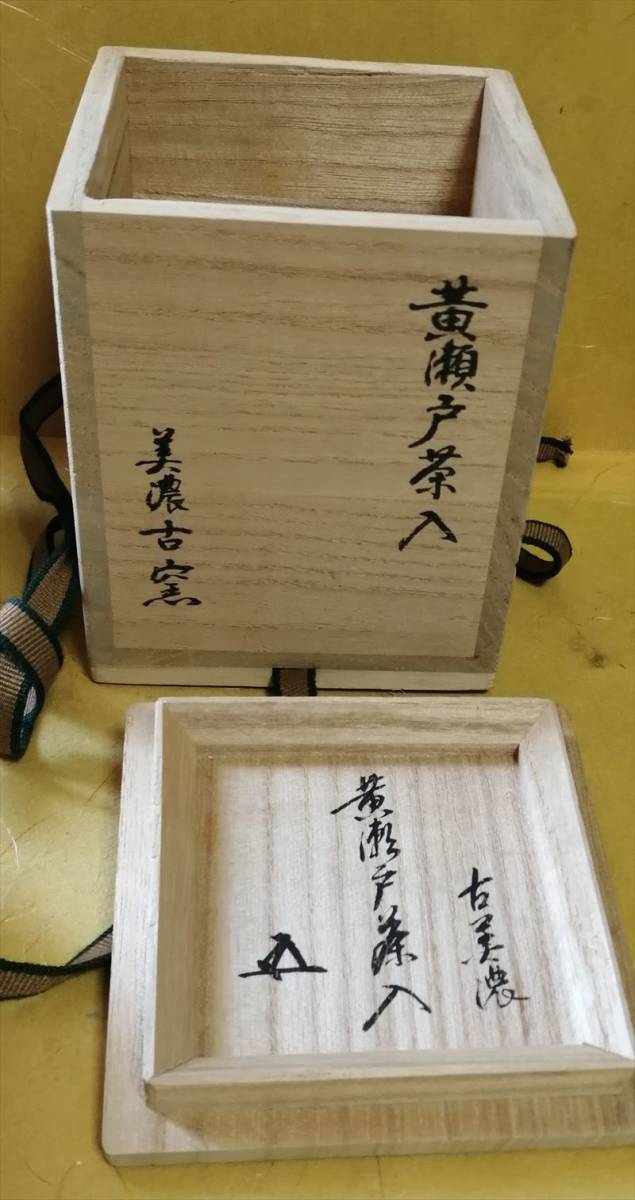 黄瀬戸茶入
美濃古窯
古美濃
黄瀬戸茶入